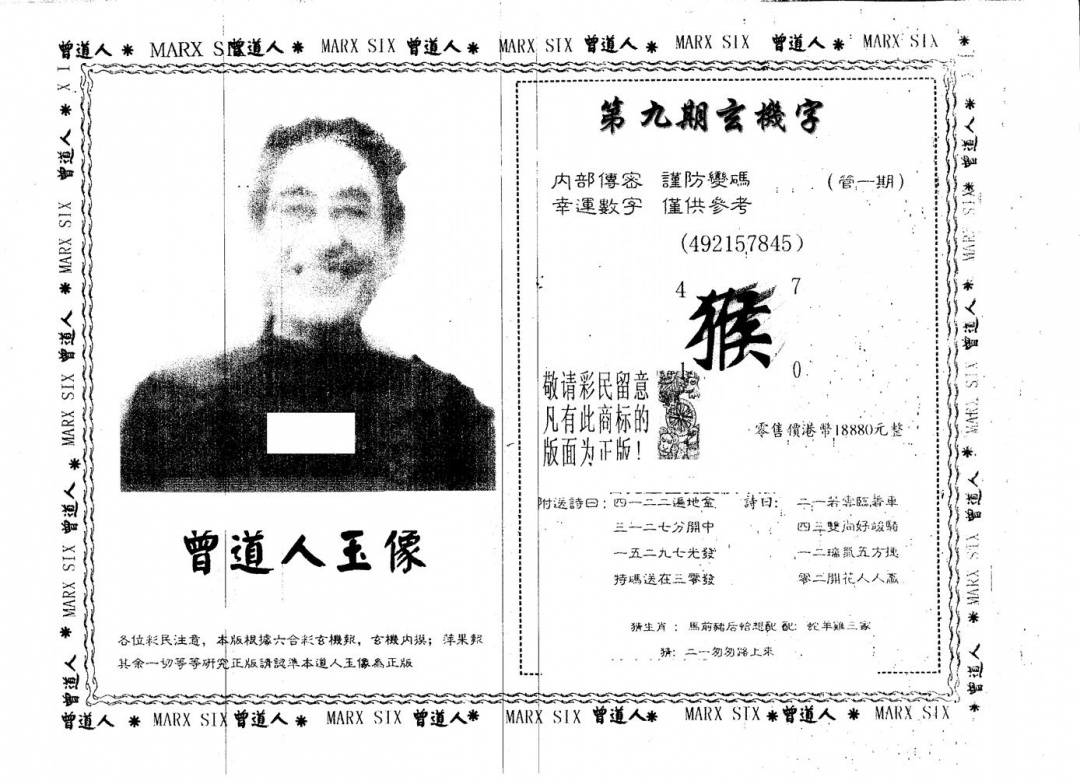 曾道人 * MARX SIX 曾道人 * MARX SIX 曾道人 * MARX SIX 曾道人 * MARX SIX 曾道人 * MARX SIX *
曾道人玉像
各位彩民注意，本版根據六合彩玄機報，玄機内摸；萍果報
其余一切等等研究正版請認準本道人玉像為正版
第九期玄機字
内部傳密 謹防變碼 （管一期）
幸運數字 僅供參考
（492157845）
4 7
猴
1 0
敬请彩民留意
凡有此商标的
版面为正版！
零售價港幣18880元整
附送詩曰：四一二二遍地金
三一二七分開中
一五二九七光發
特碼送在三零發
詩曰：二一若雲臨香車
四三雙向好峻騎
一二瑞氣五方
零二開花人人贏
猜生肖：馬前豬后 蛇羊雞三家
猜：二一匆匆路上來
曾道人 * MARX SIX 曾道人 * MARX SIX 曾道人 * MARX SIX 曾道人 * MARX SIX * 曾道人 * MARX SIX
曾道人 * MARX SIX 曾道人 * MARX SIX 曾道人 * MARX SIX 曾道人 * XI
曾道人 * MARX SIX 曾道人 * MARX SIX 曾道人 * MARX SIX 曾道人 *